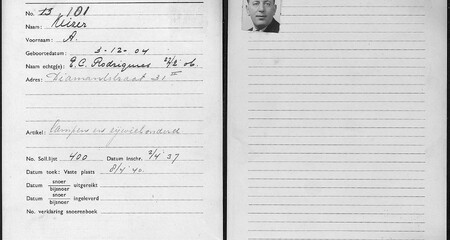 No. 13.101
Naam: Keizer
Voornaam: A.
Geboortedatum: 3-12-04
Naam echtg(e): E.C. Rodrigues
Adres: Diamantstraat
Artikel: Lampions en
No. Soll.lijst 400 Datum inschr. 2/4 '37
Datum toek: Vaste plaats 8/4 '40.
Datum snoer/bijsnoer uitgereikt
Datum snoer/bijsnoer ingeleverd
No. verklaring snoerenboek